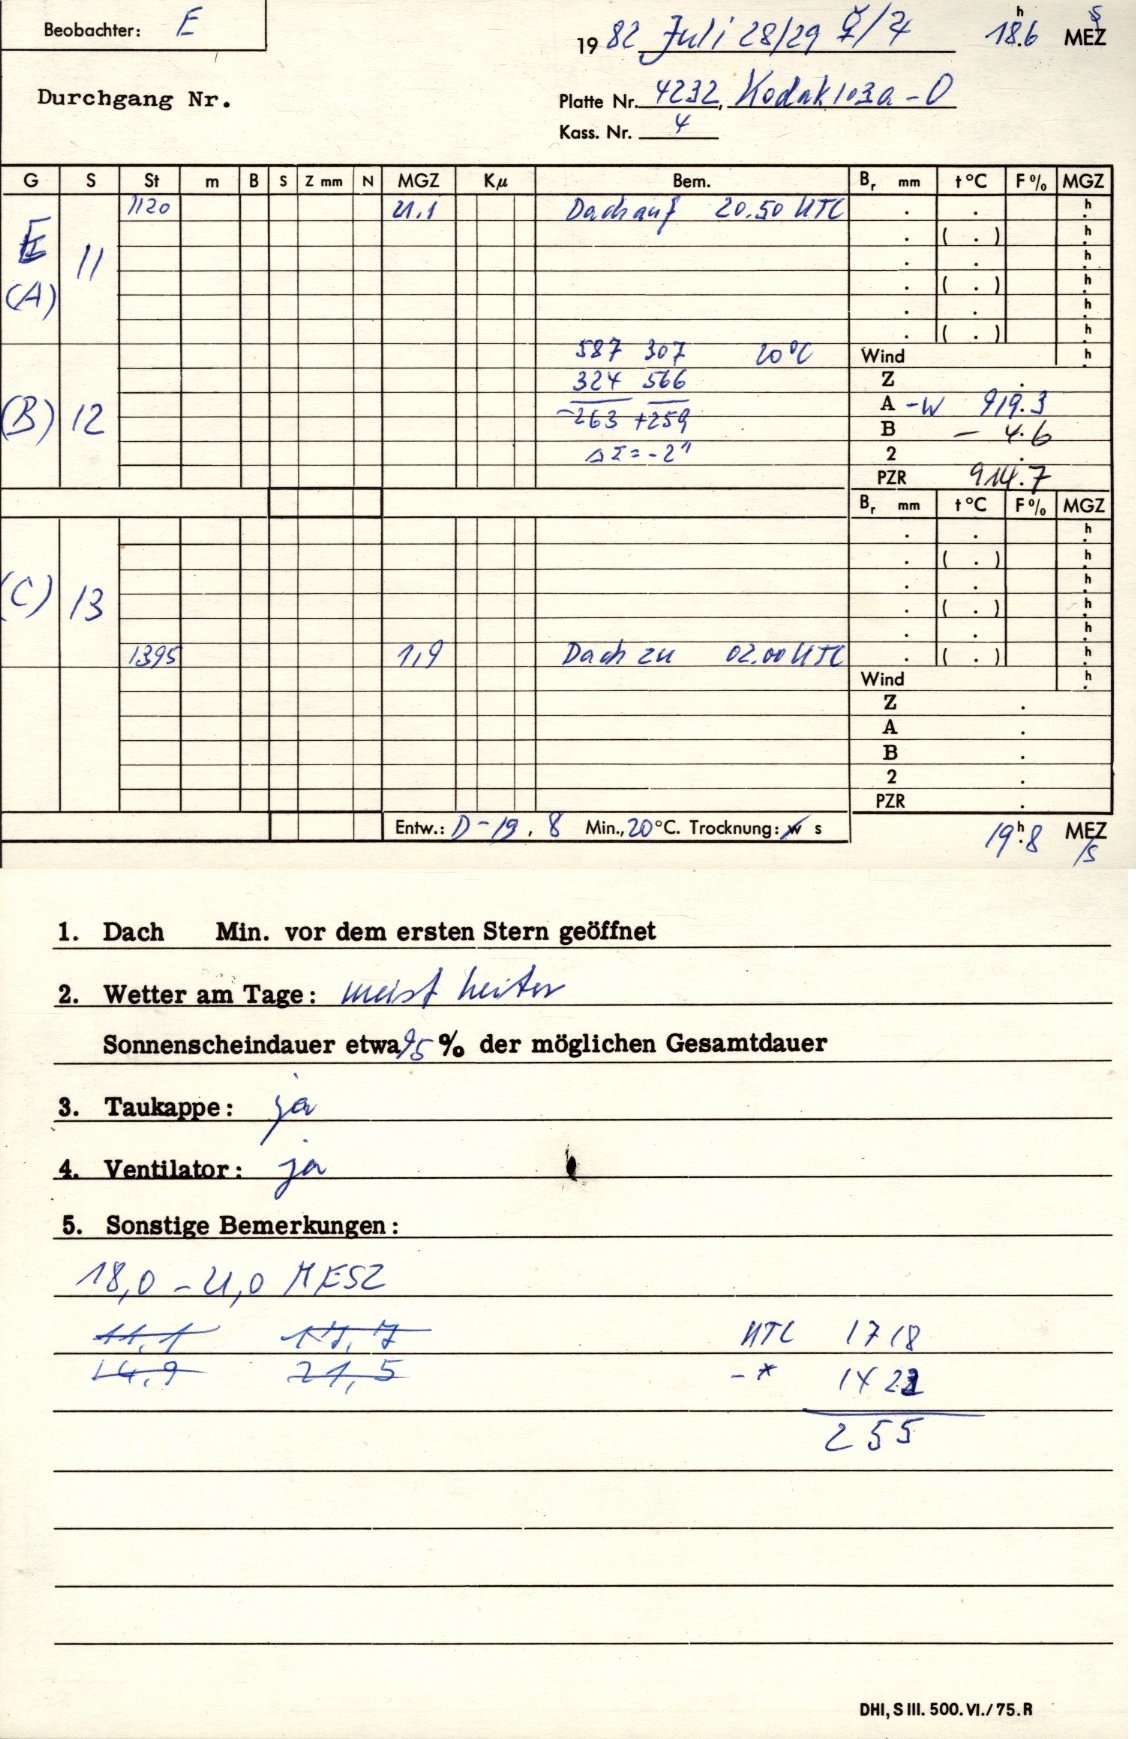 Beobachter: E
1982 Juli 28/29 18h.6 MESZ
Durchgang Nr.
Platte Nr. 4232, Kodak 103a-O
Kass. Nr. 4
G S St m B S Z mm N MGZ Kμ Bem. Br mm t°C F% MGZ
1120 21.1 Dach auf 20.50 UTC . . h
E . ( . ) h
11 . . h
(A) . ( . ) h
. . h
. ( . ) h
587 307 20°C Wind h
324 566 Z .
(B) 12 -263 +259 A -W 919.3
ΔΣ=-2" B - 4.6
2 .
PZR 914.7
Br mm t°C F% MGZ
. . h
. ( . ) h
. . h
(C) 13 . ( . ) h
. . h
1395 1,9 Dach zu 02.00 UTC . ( . ) h
Wind h
Z .
A .
B .
2 .
PZR .
Entw.: D-19, 8 Min., 20°C. Trocknung: w s
19h.8 MEZ
/S
1. Dach Min. vor dem ersten Stern geöffnet
2. Wetter am Tage: meist heiter
Sonnenscheindauer etwa 95 % der möglichen Gesamtdauer
3. Taukappe: ja
4. Ventilator: ja
5. Sonstige Bemerkungen:
18,0 - 21,0 MESZ
11,1 17,7 UTC 1718
14,9 21,5 -* 1423
255
DHI, S III. 500. VI./75. R